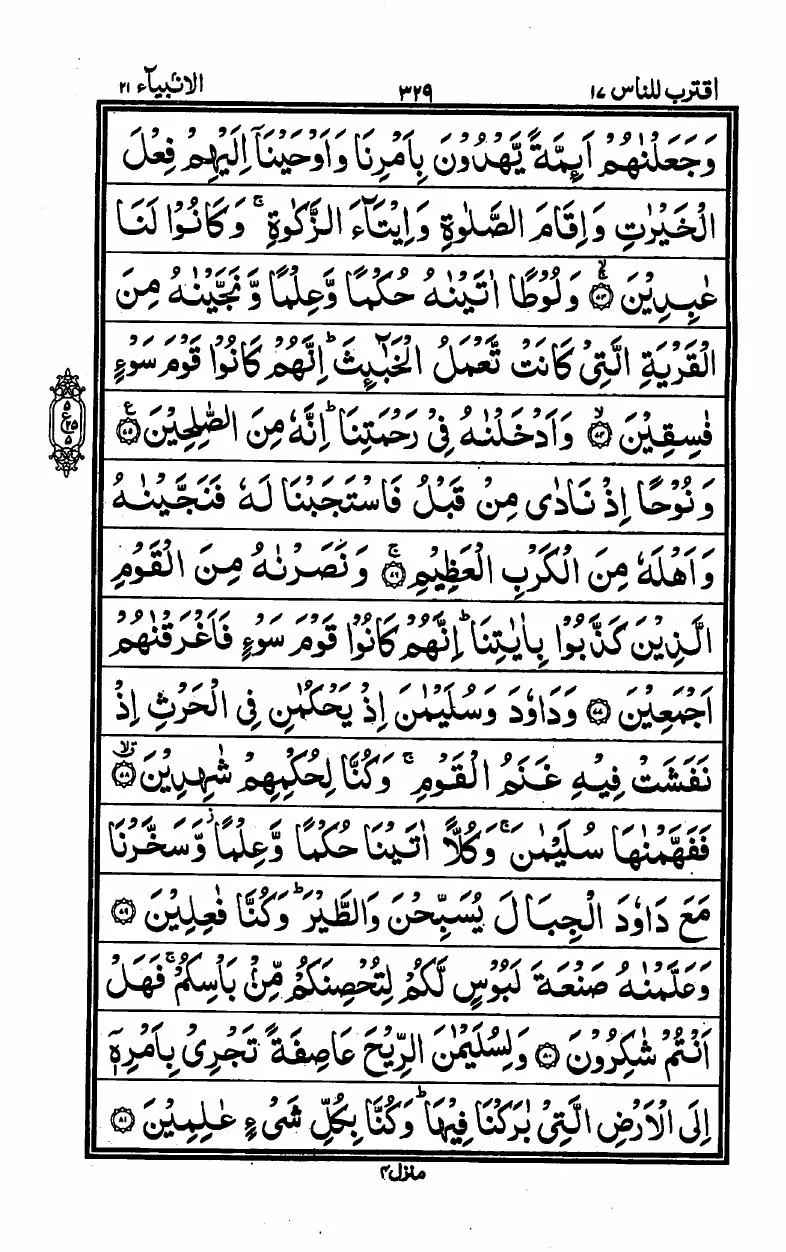 اقترب للناس ۱۷
۳۲۹
الانبیآء ۲۱
وَجَعَلْنٰهُمْ اَىِٕمَّةً یَّهْدُوْنَ بِاَمْرِنَا وَاَوْحَیْنَاۤ اِلَیْهِمْ فِعْلَ
الْخَیْرٰتِ وَاِقَامَ الصَّلٰوةِ وَاِیْتَآءَ الزَّكٰوةِ ۚ وَكَانُوْا لَنَا
عٰبِدِیْنَ ۙۚ ﴿۷۳﴾ وَلُوْطًا اٰتَیْنٰهُ حُكْمًا وَّعِلْمًا وَّنَجَّیْنٰهُ مِنَ
الْقَرْیَةِ الَّتِیْ كَانَتْ تَّعْمَلُ الْخَبٰٓىِٕثَ ؕ اِنَّهُمْ كَانُوْا قَوْمَ سَوْءٍ
فٰسِقِیْنَ ۙ ﴿۷۴﴾ وَاَدْخَلْنٰهُ فِیْ رَحْمَتِنَا ؕ اِنَّهٗ مِنَ الصّٰلِحِیْنَ ﴿۷۵﴾ ع
۵ ع ۲۵ ۵
وَنُوْحًا اِذْ نَادٰی مِنْ قَبْلُ فَاسْتَجَبْنَا لَهٗ فَنَجَّیْنٰهُ
وَاَهْلَهٗ مِنَ الْكَرْبِ الْعَظِیْمِ ۚ ﴿۷۶﴾ وَنَصَرْنٰهُ مِنَ الْقَوْمِ
الَّذِیْنَ كَذَّبُوْا بِاٰیٰتِنَا ؕ اِنَّهُمْ كَانُوْا قَوْمَ سَوْءٍ فَاَغْرَقْنٰهُمْ
اَجْمَعِیْنَ ﴿۷۷﴾ وَدَاوٗدَ وَسُلَیْمٰنَ اِذْ یَحْكُمٰنِ فِی الْحَرْثِ اِذْ
نَفَشَتْ فِیْهِ غَنَمُ الْقَوْمِ ۚ وَكُنَّا لِحُكْمِهِمْ شٰهِدِیْنَ ۗۙ ﴿۷۸﴾
فَفَهَّمْنٰهَا سُلَیْمٰنَ ۚ وَكُلًّا اٰتَیْنَا حُكْمًا وَّعِلْمًا ؗ وَّسَخَّرْنَا
مَعَ دَاوٗدَ الْجِبَالَ یُسَبِّحْنَ وَالطَّیْرَ ؕ وَكُنَّا فٰعِلِیْنَ ﴿۷۹﴾
وَعَلَّمْنٰهُ صَنْعَةَ لَبُوْسٍ لَّكُمْ لِتُحْصِنَكُمْ مِّنْۢ بَاْسِكُمْ ۚ فَهَلْ
اَنْتُمْ شٰكِرُوْنَ ﴿۸۰﴾ وَلِسُلَیْمٰنَ الرِّیْحَ عَاصِفَةً تَجْرِیْ بِاَمْرِهٖۤ
اِلَی الْاَرْضِ الَّتِیْ بٰرَكْنَا فِیْهَا ؕ وَكُنَّا بِكُلِّ شَیْءٍ عٰلِمِیْنَ ﴿۸۱﴾
منزل ۴